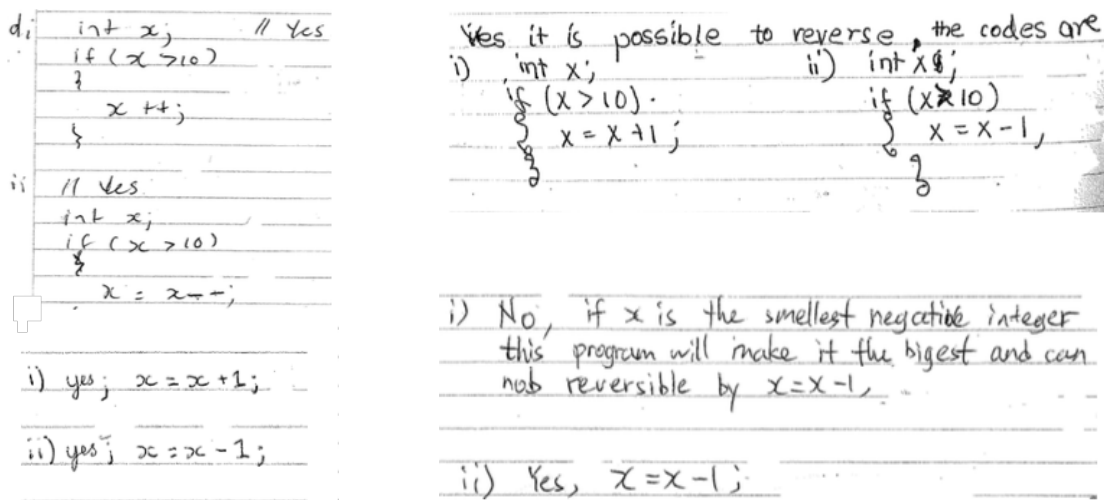 di int x; // Yes
if (x >10)
{
x ++;
}
ii // Yes
int x;
if (x > 10)
{
x = x--;
i) yes; x = x + 1;
ii) yes; x = x - 1;
Yes it is possible to reverse, the codes are
i) int x; ii) int x;
if (x > 10). if (x 10)
{ x = x + 1; { x = x - 1,
} }
i) No, if x is the smellest negative integer
this program will make it the bigest and can
nob reversible by x=x-1,
ii) Yes, x = x - 1;